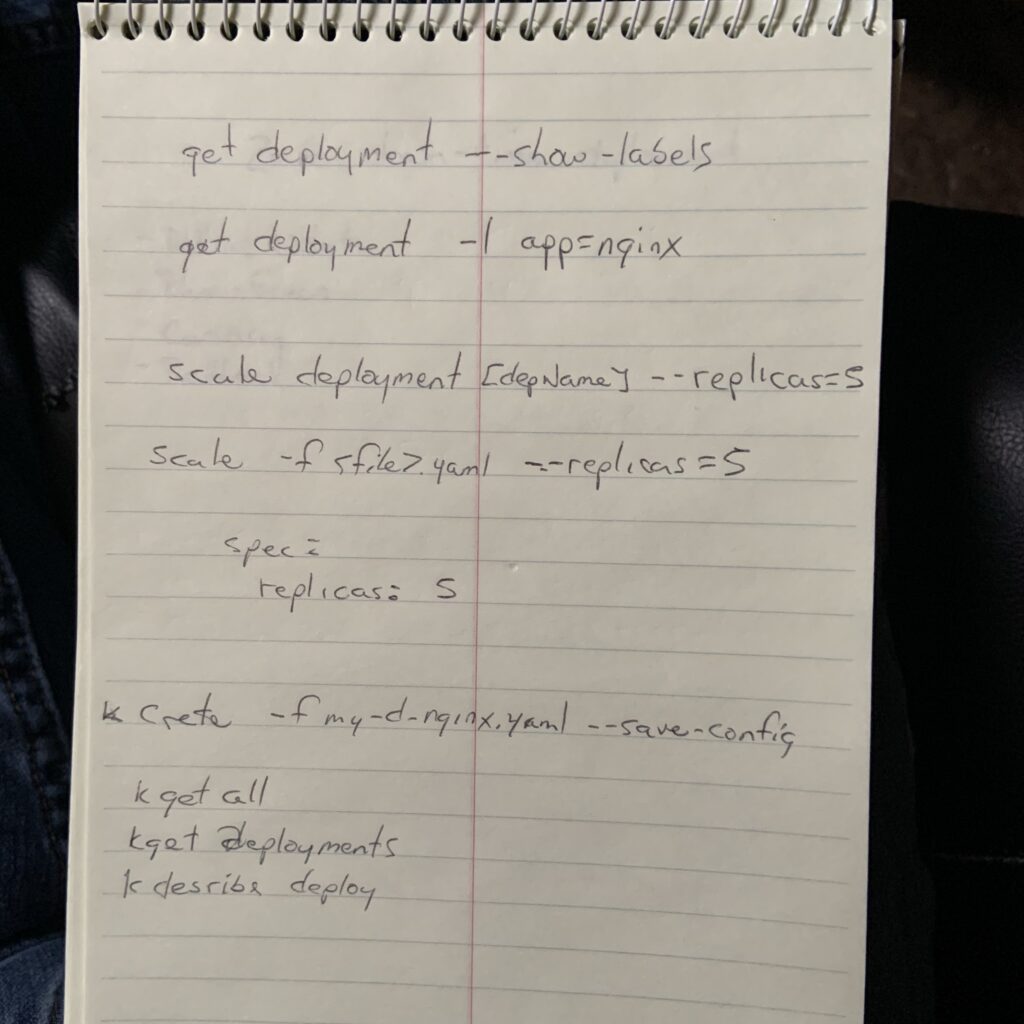 get deployment --show-labels
get deployment -l app=nginx
scale deployment [depName] --replicas=5
scale -f <file>.yaml --replicas=5
spec:
replicas: 5
k Crete -f my-d-nginx.yaml --save-config
k get all
k get deployments
k describe deploy